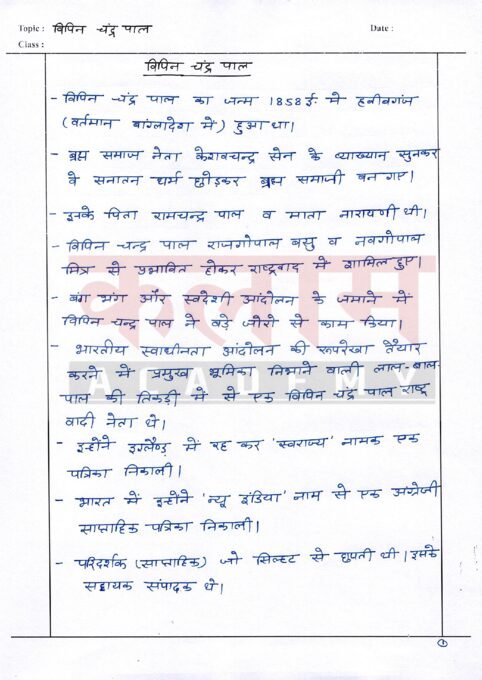 Topic : विपिन चंद्र पाल Date :
Class :
विपिन चंद्र पाल
- विपिन चंद्र पाल का जन्म 1858 ई. में हबीबगंज
(वर्तमान बांग्लादेश में) हुआ था।
- ब्रह्म समाज नेता केशवचन्द्र सेन के व्याख्यान सुनकर
वे सनातन धर्म छोड़कर ब्रह्म समाजी बन गए।
- इनके पिता रामचन्द्र पाल व माता नारायणी थी।
- विपिन चन्द्र पाल राजगोपाल बसु व नवगोपाल
मित्र से प्रभावित होकर राष्ट्रवाद में शामिल हुए।
- बंग भंग और स्वदेशी आंदोलन के जमाने में
विपिन चन्द्र पाल ने बड़े जोरो से काम किया।
- भारतीय स्वाधीनता आंदोलन की रूपरेखा तैयार
करने में प्रमुख भूमिका निभाने वाली लाल-बाल-
पाल की तिकड़ी में से एक विपिन चंद्र पाल राष्ट्र
वादी नेता थे।
- इन्होंने इंग्लैण्ड में रह कर 'स्वराज्य' नामक एक
पत्रिका निकाली।
- भारत में इन्होंने 'न्यू इंडिया' नाम से एक अंग्रेजी
साप्ताहिक पत्रिका निकाली।
- परिदर्शक (साप्ताहिक) जो सिल्हट से छपती थी। इसके
सहायक संपादक थे।
कलाम
ACADEMY
1